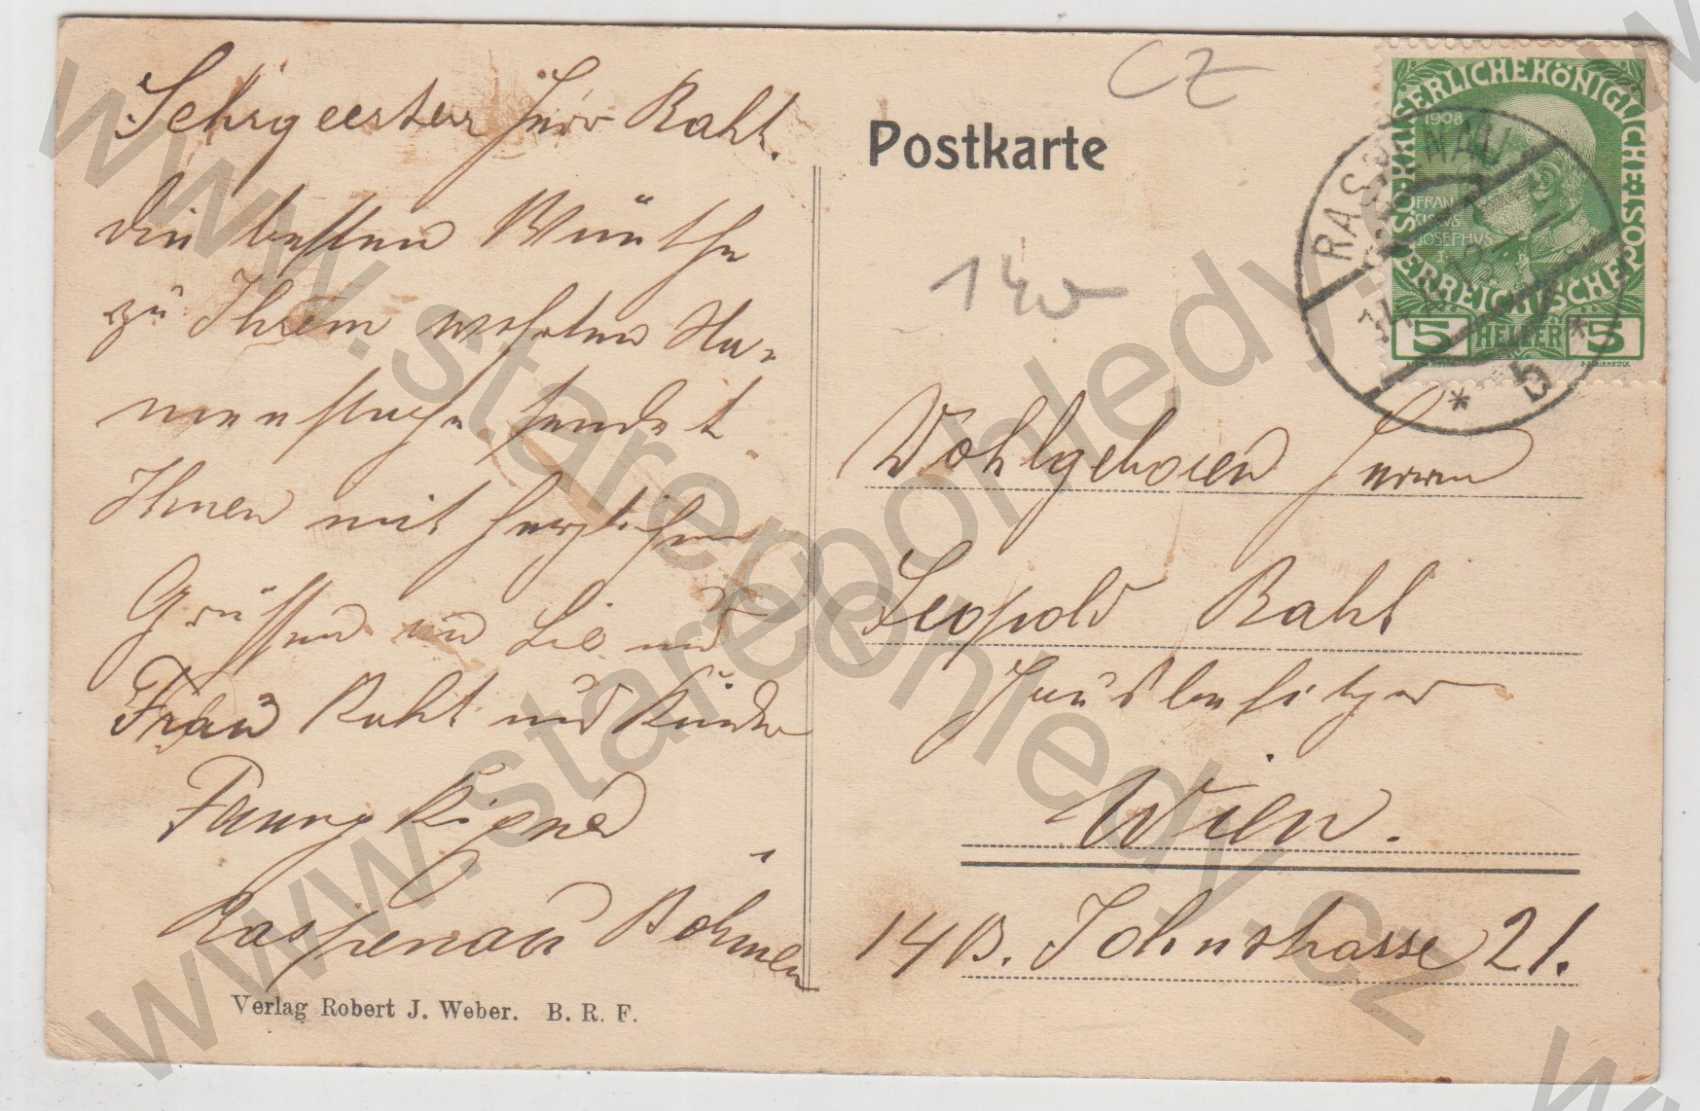 Sehrgeerter Herr Rahl.
Die besten Wünsche
zu Ihrem werten Na-
mensfeste sendet
Ihnen mit herzlichen
Grüssen an Sie und
Frau Rahl und Kinder
Fanny
Raspenau Böhmen
Verlag Robert J. Weber. B. R. F.
CZ
Postkarte
140
KAISERLICHE KÖNIGLICHE ÖSTERREICHISCHE POST
1908
FRANCISCUS JOSEPHUS I
5 HELLER 5
RASPENAU
* b *
Wohlgeboren Herrn
Leopold Rahl
Hausbesitzer
Wien.
14 B. Johnstrasse 21.
www.starepohledy.cz
www.starepohledy.cz